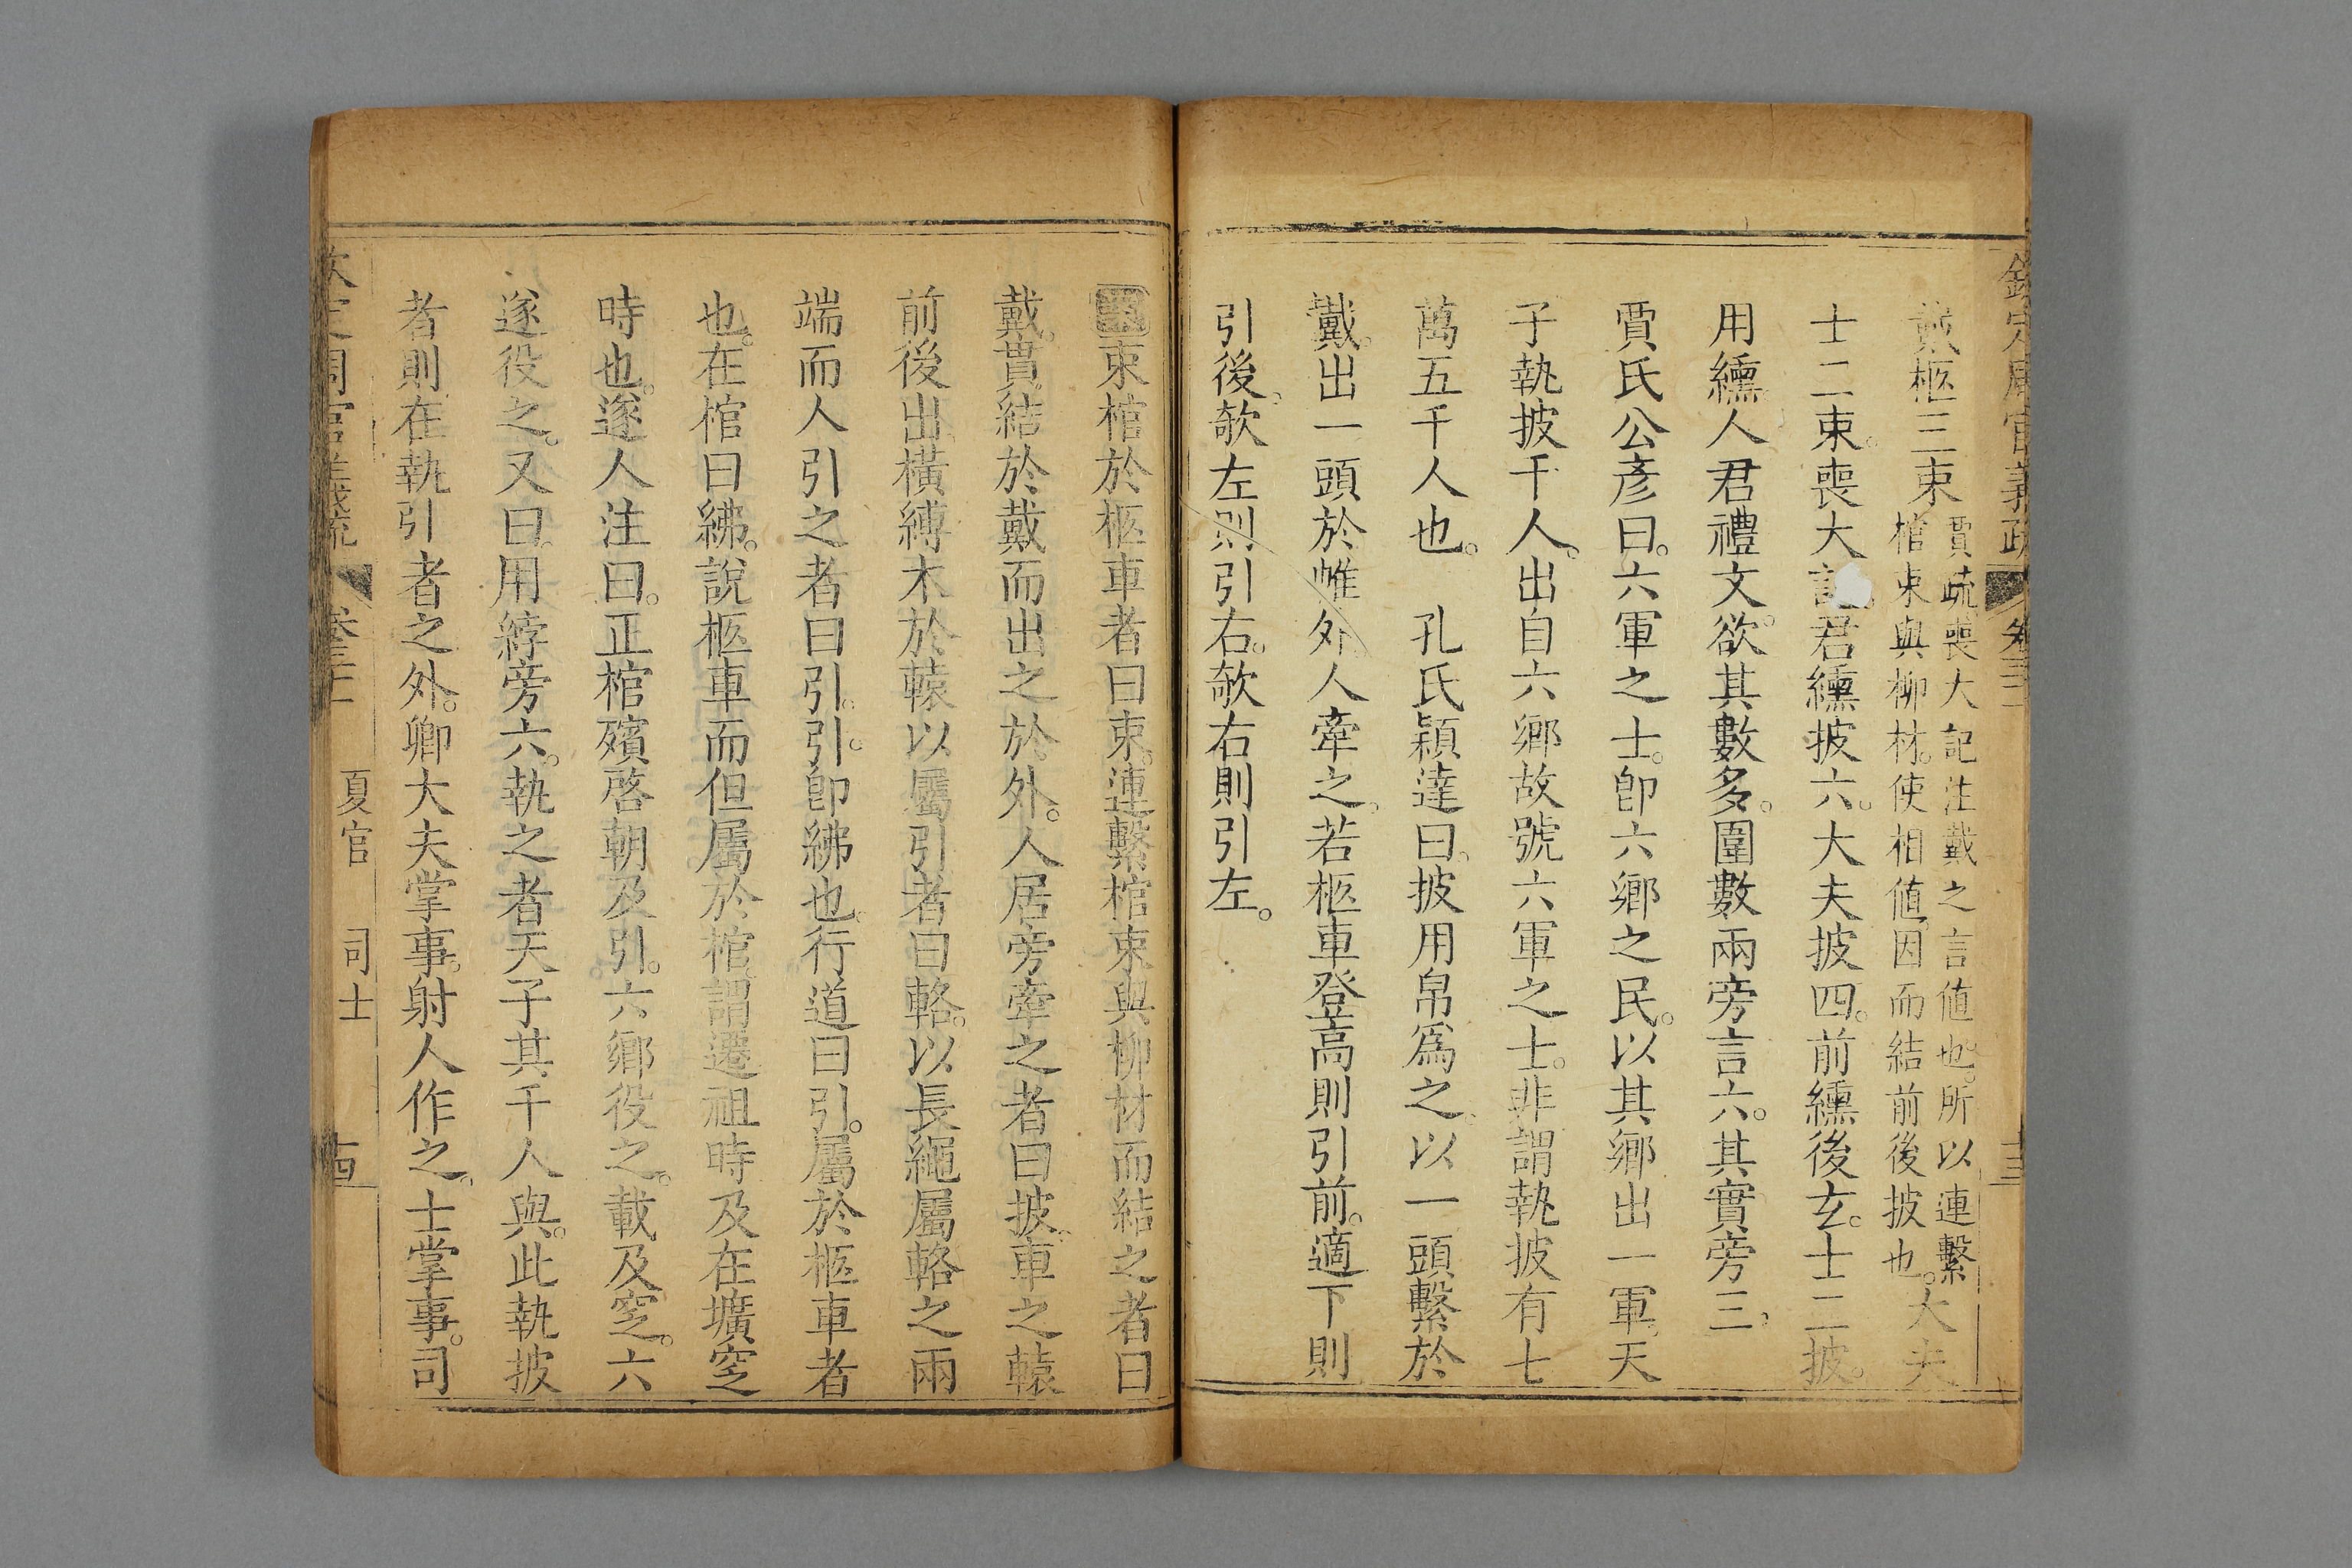 欽定周官義疏 卷三十一 十三
戴柩三束
賈疏喪大記注戴之言値也。所以連繫
棺束與柳材。使相値。因而結前後披也。
大夫
士二束。喪大記。君纁披六。大夫披四。前纁後玄。士二披。
用纁人君禮文。欲其數多。圍數兩旁言六。其實旁三。
賈氏公彥曰。六軍之士。卽六鄉之民。以其鄉出一軍。天
子執披千人。出自六鄉故號六軍之士。非謂執披有七
萬五千人也。 孔氏穎達曰。披用帛爲之。以一頭繫於
戴。出一頭於帷外。人牽之。若柩車登高則引前。適下則
引後。欹左則引右。欹右則引左。
束棺於柩車者曰束。連繫棺束與柳材而結之者曰
戴。貫結於戴而出之於外。人居旁牽之者曰披。車之轅
前後出。橫縛木於轅以屬引者曰輅。以長繩屬輅之兩
端而人引之者曰引。引卽紼也。行道曰引。屬於柩車者
也。在棺曰紼。說柩車而但屬於棺。謂遷祖時及在壙窆
時也。遂人注曰。正棺殯啓朝及引。六鄉役之。載及窆。六
遂役之。又曰。用綍旁六。執之者天子其千人與。此執披
者則在執引者之外。卿大夫掌事。射人作之。士掌事。司
欽定周官義疏 卷三十一 夏官 司士 十四